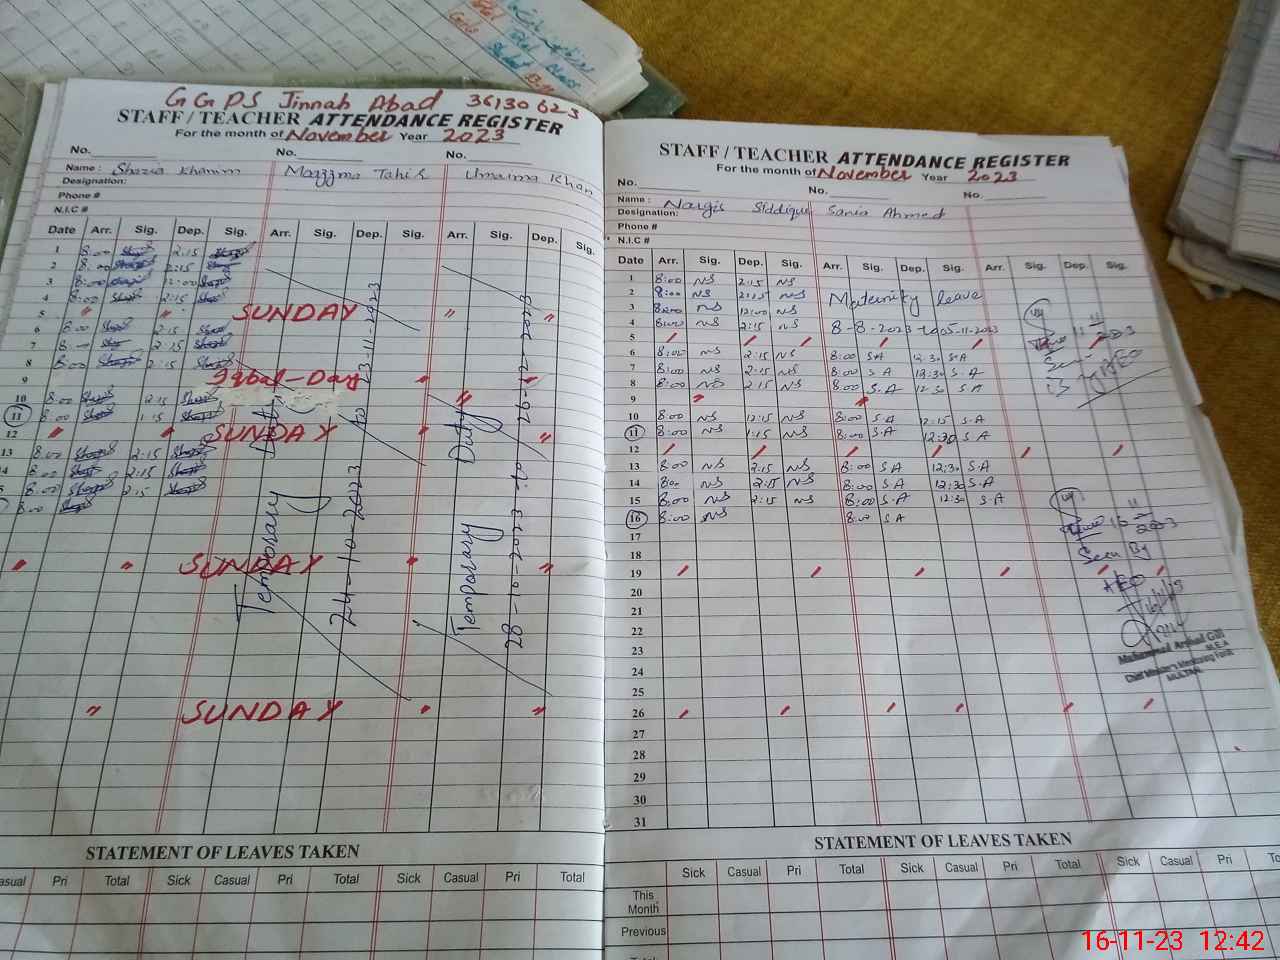 GGPS Jinnah Abad 36130623
STAFF / TEACHER ATTENDANCE REGISTER
For the month of November Year 2023
No. No. No.
Name: Shazia Khanim Umaima Khan
Designation:
Phone #
N.I.C #
Date Arr. Sig. Dep. Sig. Arr. Sig. Dep. Sig. Arr. Sig. Dep. Sig.
1 8:00 2:15
2 8:00 2:15
3 8:00 12:00
4 8:00 2:15
5 " " SUNDAY " "
6 8:00 2:15
7 8:00 2:15
8 8:00 2:15
9 Iqbal-Day
10 8:00 12:15
11 8:00 1:15
12 " " SUNDAY " "
13 8:00 2:15
14 8:00 2:15
8:00 2:15
8:00
" " SUNDAY " "
" SUNDAY " "
Temporary Duty
24-10-2023 to 23-11-2023
Temporary Duty
28-10-2023 to 26-12-2023
STATEMENT OF LEAVES TAKEN
Casual Pri Total Sick Casual Pri Total Sick Casual Pri Total
STAFF / TEACHER ATTENDANCE REGISTER
For the month of November Year 2023
No. No. No.
Name: Nargis Siddique Sania Ahmed
Designation:
Phone #
N.I.C #
Date Arr. Sig. Dep. Sig. Arr. Sig. Dep. Sig. Arr. Sig. Dep. Sig.
1 8:00 NS 2:15 NS
2 8:00 NS 2:15 NS Maternity leave
3 8:00 NS 12:00 NS
4 8:00 NS 2:15 NS 8-8-2023 to 05-11-2023
5
6 8:00 NS 2:15 NS 8:00 S.A 12:30 S.A
7 8:00 NS 2:15 NS 8:00 S.A 12:30 S.A
8 8:00 NS 2:15 NS 8:00 S.A 12:30 S.A
9 " "
10 8:00 NS 12:15 NS 8:00 S.A 12:15 S.A
11 8:00 NS 1:15 NS 8:00 S.A 12:30 S.A
12
13 8:00 NS 2:15 NS 8:00 S.A 12:30 S.A
14 8:00 NS 2:15 NS 8:00 S.A 12:30 S.A
15 8:00 NS 2:15 NS 8:00 S.A 12:30 S.A
16 8:00 NS 8:00 S.A
17
18
19
20
21
22
23
24
25
26
27
28
29
30
31
Seen By
AEO
Muhammad Arshad Gill
M.E.A
MULTAN
STATEMENT OF LEAVES TAKEN
Sick Casual Pri Total Sick Casual Pri Total Sick Casual Pri
This Month
Previous
16-11-23 12:42